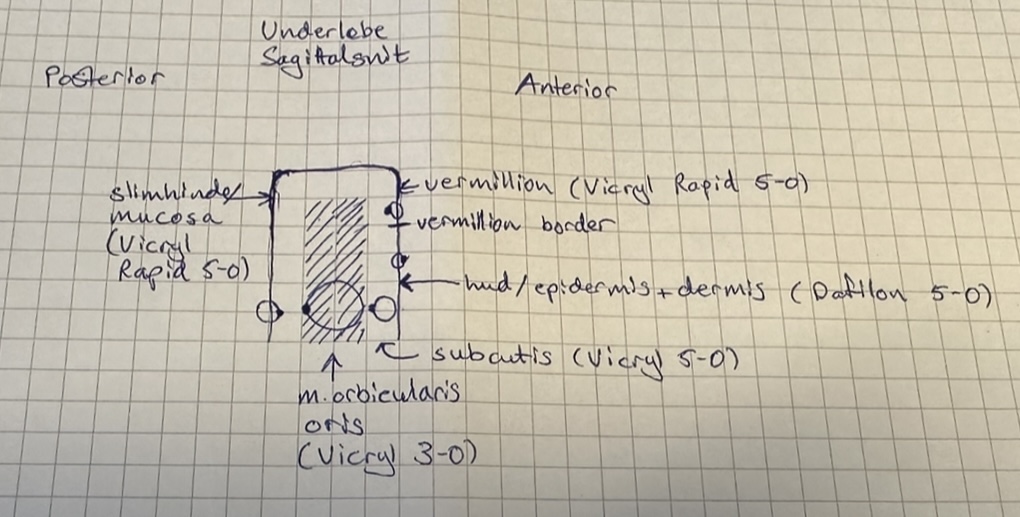 Underlebe
Sagittalsnit
Posterior
Anterior
slimhinde/
mucosa
(Vicryl
Rapid 5-0)
vermillion (Vicryl Rapid 5-0)
vermillion border
hud/epidermis + dermis (Dafilon 5-0)
subcutis (Vicryl 5-0)
m. orbicularis
oris
(Vicryl 3-0)